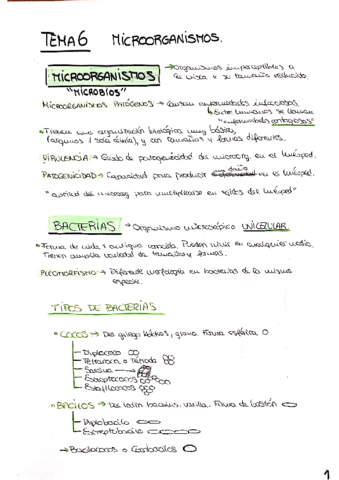 TEMA 6 MICROORGANISMOS.
MICROORGANISMOS → Organismos imperceptibles a
la vista x su tamaño reducido
"MICROBIOS"
MICROORGANISMOS PATÓGENOS → Causan enfermedades infecciosas
↳ Entre humanos se llaman
"enfermedades contagiosas"
• Tienen una organización biológica muy básica,
(algunos 1 sola célula), y con tamaños y formas diferentes.
VIRULENCIA → Grado de patogenicidad del microorg. en el huésped.
PATOGENICIDAD → Capacidad para producir daño en el huésped.
"aptitud del microorg para multiplicarse en tejidos del huésped"
BACTERIAS → Organismo microscópico UNICELULAR
• Forma de vida + antigua conocida. Pueden vivir en cualquier medio.
Tienen amplia variedad de tamaños y formas.
PLEOMORFISMO → Diferente morfología en bacterias de la misma
especie.
TIPOS DE BACTERIAS
• COCOS → Del griego kókkos, grano. Forma esférica
Diplococo
Tetracoco o Tétrada
Sarcina
Estreptococos
Estafilococos
• BACILOS → Del latín baculus, varilla. Forma de bastón
Diplobacilo
Estreptobacilo
→ Bacilococos o Cocobacilos
1